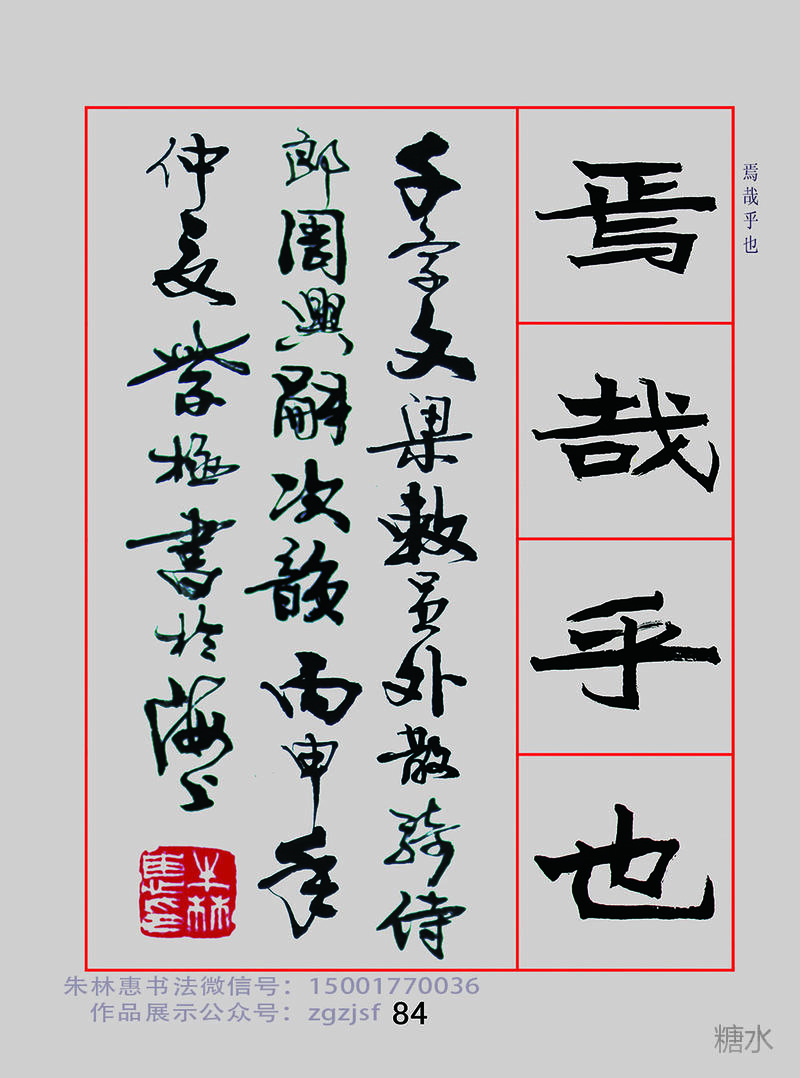 焉哉乎也
焉
哉
乎
也
千字文梁敕員外散騎侍
郎周興嗣次韻丙申年
仲夏紫極書於海上
朱林惠印
朱林惠书法微信号：15001770036
作品展示公众号：zgzjsf
84
糖水